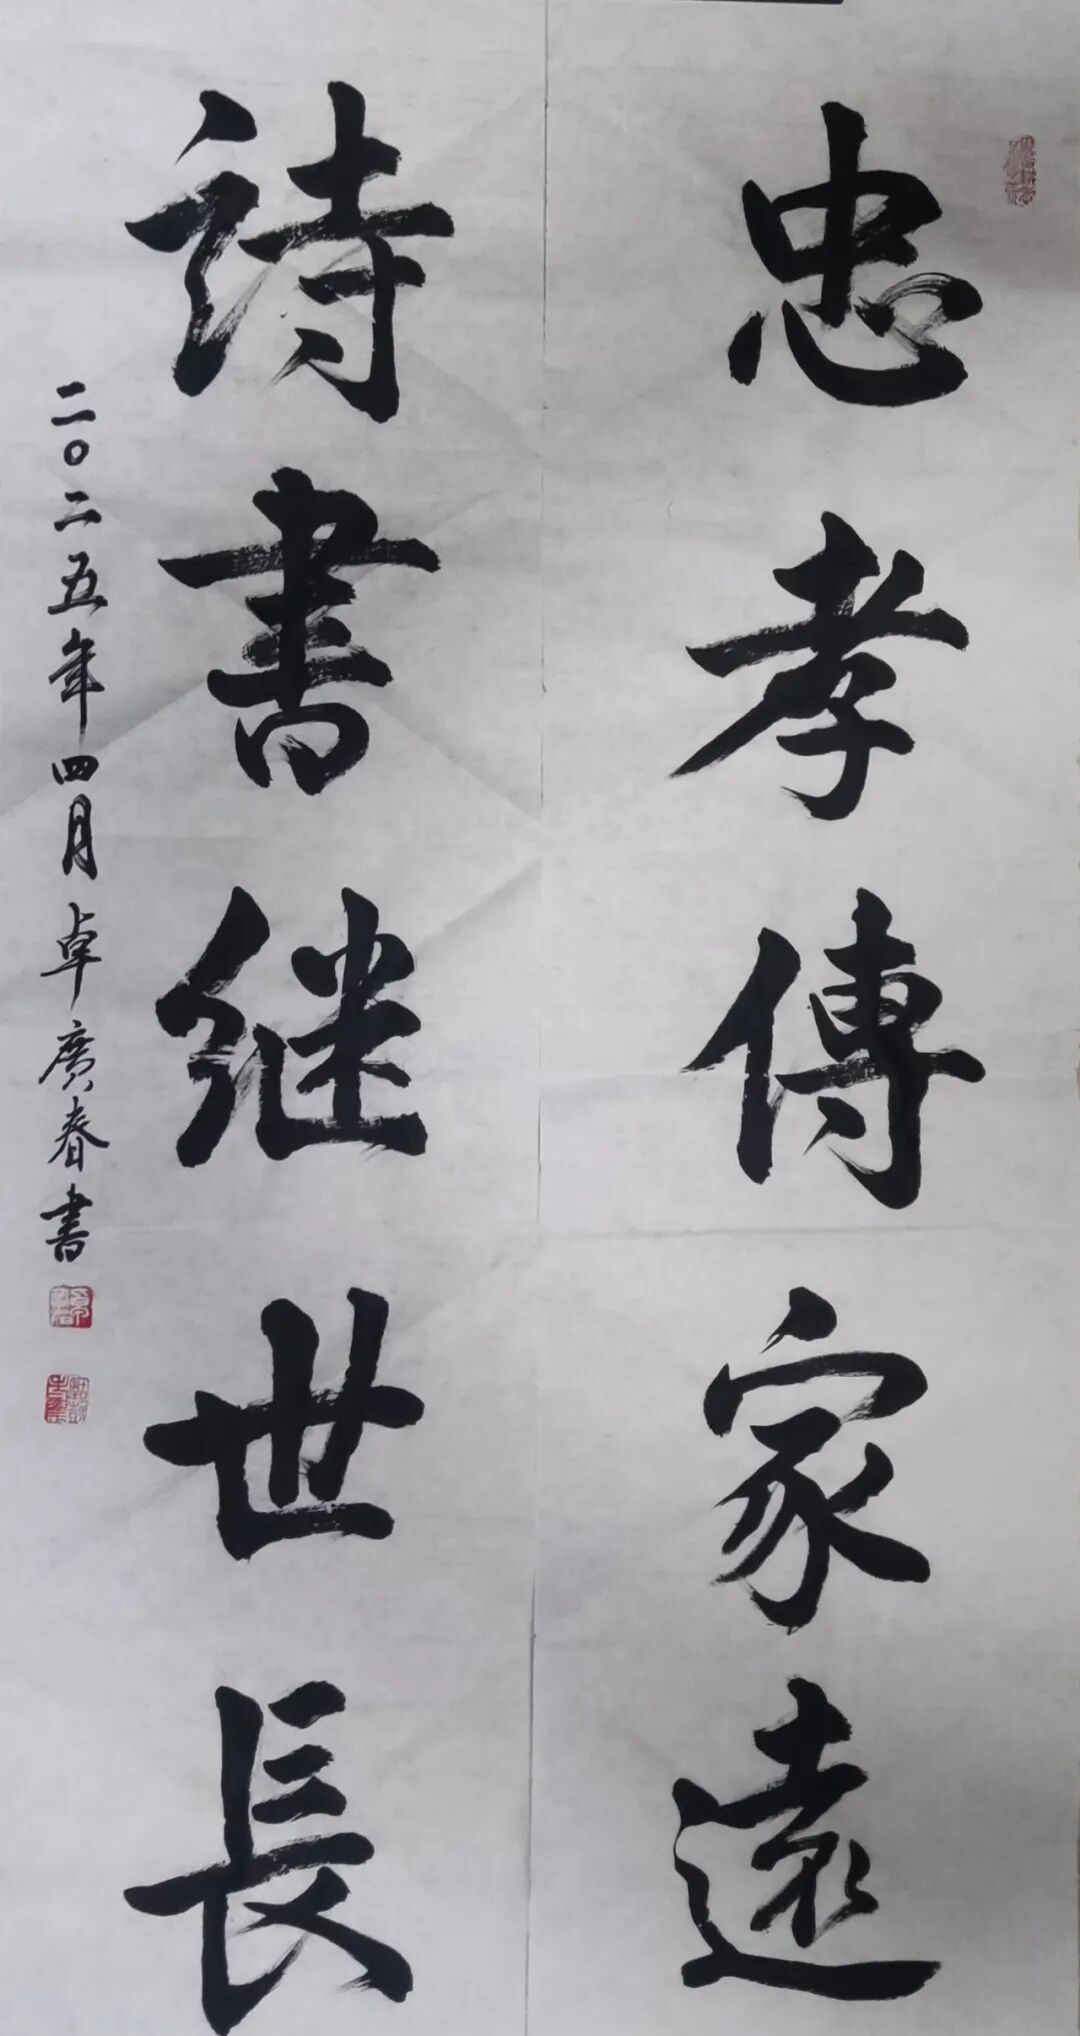 忠孝傳家遠
詩書继世長
二〇二五年四月卓廣春書